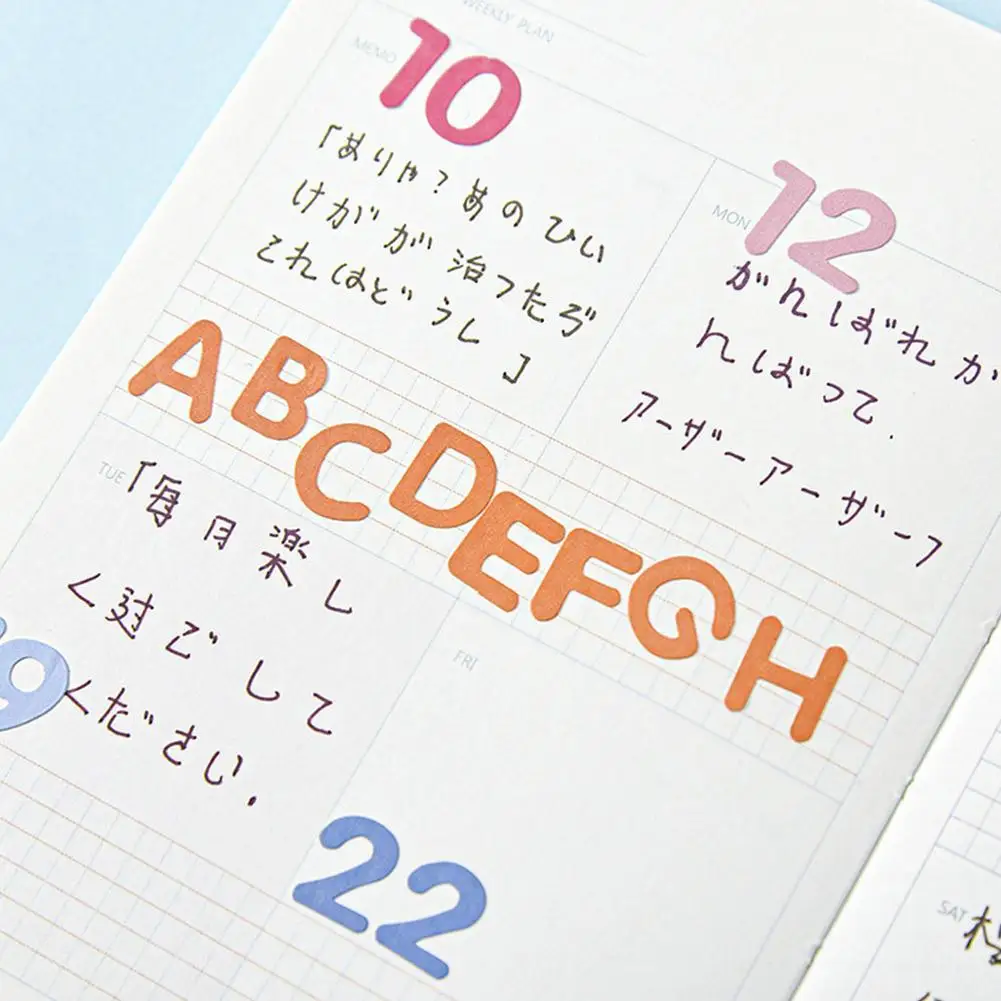 WEEKLY PLAN
MEMO
10
「ありゃ？あのひい
けがが治ったぞ
これはどうし」
MON
12
がんばれか
んばって.
アーザーアーザーフ
ABCDEFGH
TUE
「毎月楽し
く过ごして
ください.
19
FRI
22
SAT